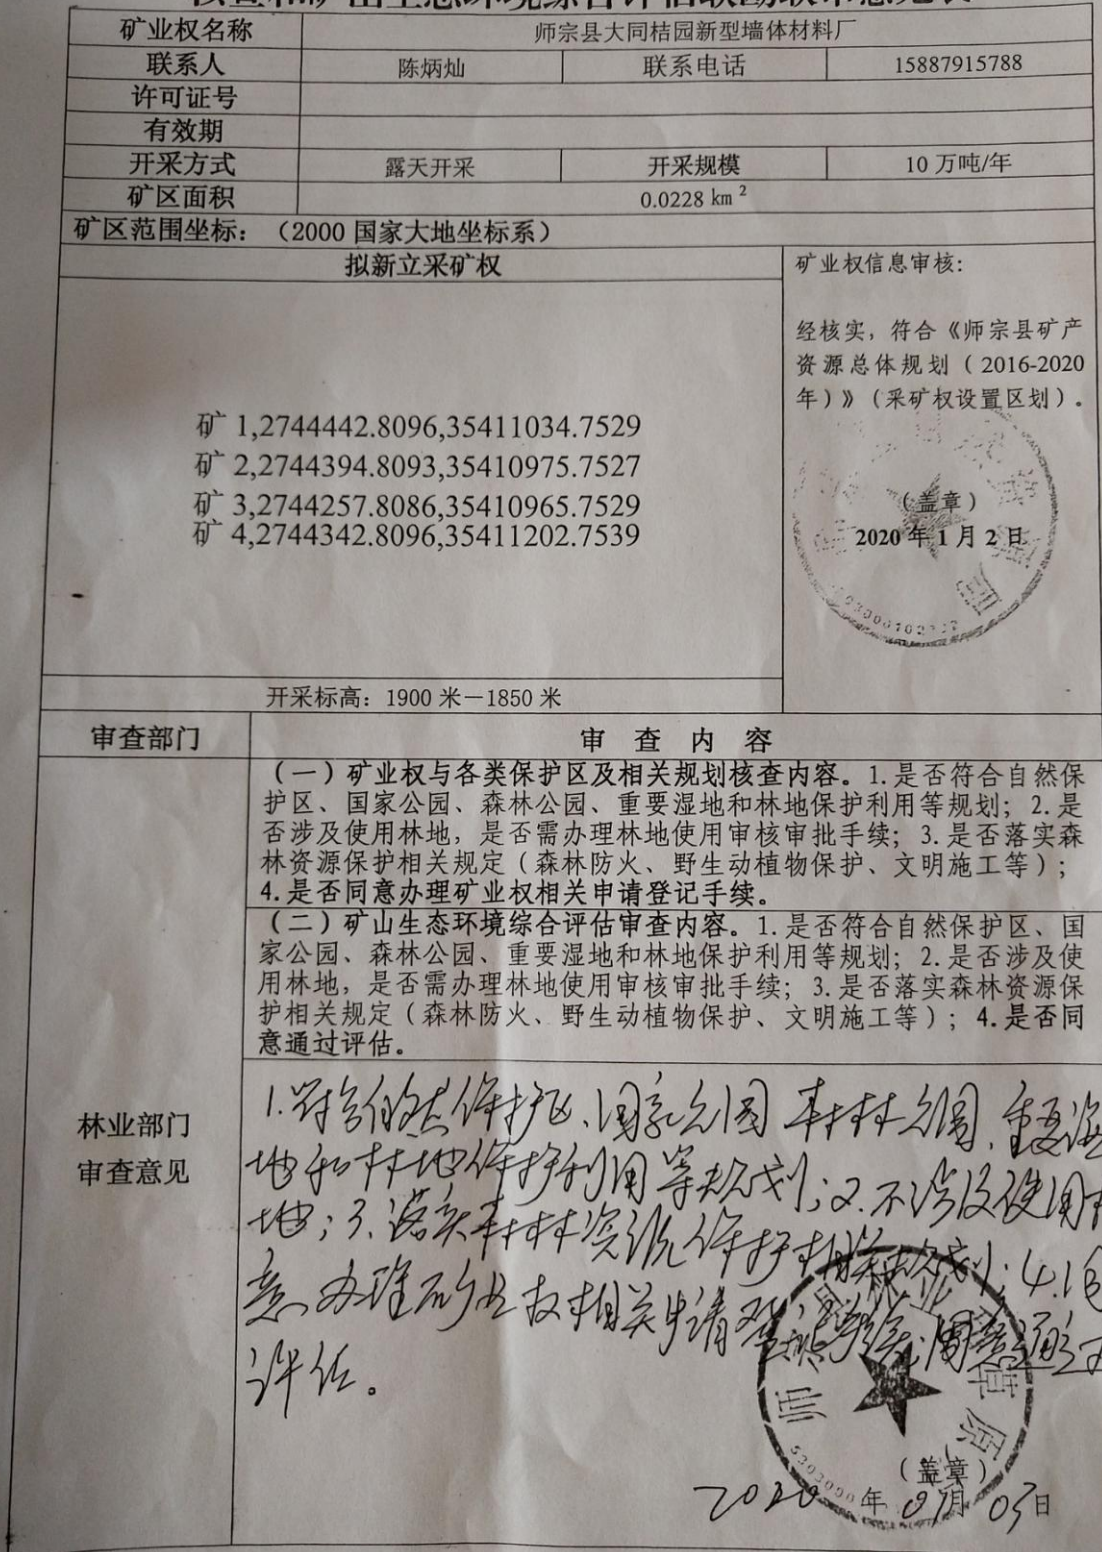 核查和矿山生态环境综合评估联勘联审意见表
矿业权名称 师宗县大同桔园新型墙体材料厂
联系人 陈炳灿 联系电话 15887915788
许可证号
有效期
开采方式 露天开采 开采规模 10 万吨/年
矿区面积 0.0228 km²
矿区范围坐标：（2000 国家大地坐标系）
拟新立采矿权
矿 1,2744442.8096,35411034.7529
矿 2,2744394.8093,35410975.7527
矿 3,2744257.8086,35410965.7529
矿 4,2744342.8096,35411202.7539
开采标高：1900 米－1850 米
矿业权信息审核：
经核实，符合《师宗县矿产
资源总体规划（2016-2020
年）》（采矿权设置区划）。
（盖章）
2020 年 1 月 2 日
审查部门 审 查 内 容
（一）矿业权与各类保护区及相关规划核查内容。1.是否符合自然保
护区、国家公园、森林公园、重要湿地和林地保护利用等规划；2.是
否涉及使用林地，是否需办理林地使用审核审批手续；3.是否落实森
林资源保护相关规定（森林防火、野生动植物保护、文明施工等）；
4.是否同意办理矿业权相关申请登记手续。
（二）矿山生态环境综合评估审查内容。1.是否符合自然保护区、国
家公园、森林公园、重要湿地和林地保护利用等规划；2.是否涉及使
用林地，是否需办理林地使用审核审批手续；3.是否落实森林资源保
护相关规定（森林防火、野生动植物保护、文明施工等）；4.是否同
意通过评估。
林业部门
审查意见
1.符合自然保护区、国家公园、森林公园、重要湿
地和林地保护利用等规划；2.不涉及使用林
地；3.落实森林资源保护相关规划；4.同
意办理矿业权相关申请登记手续；同意通过
评估。
（盖章）
2020 年 01 月 03 日